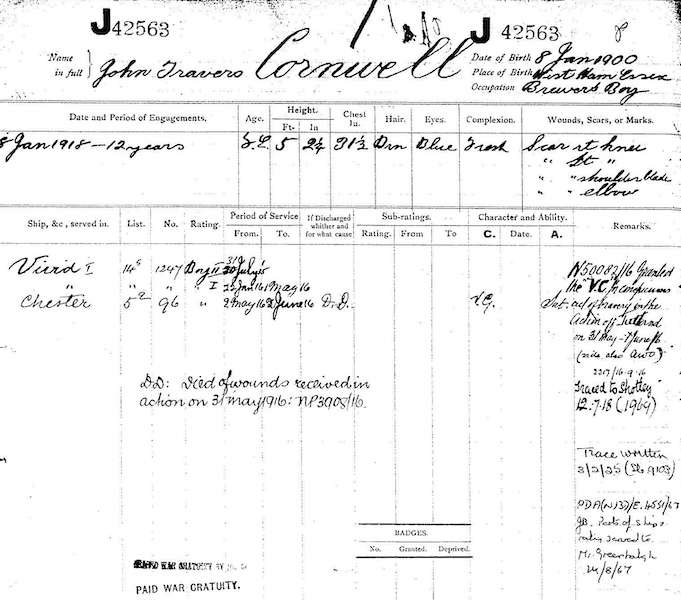 J 42563 J 42563
Name in full John Travers Cornwell
Date of Birth 8 Jan 1900
Place of Birth West Ham Essex
Occupation Brewers Boy
Date and Period of Engagements. Age. Height. Ft. In Chest In. Hair. Eyes. Complexion. Wounds, Scars, or Marks.
8 Jan 1918 – 12 years 5 2¼ 31½ Brn Blue Fresh Scar rt knee
" lt "
" " shoulder blade
" " elbow
Ship, &c., served in. List. No. Rating. Period of Service From. To. If Discharged whither and for what cause Sub-ratings. Rating. From To Character and Ability. C. Date. A. Remarks.
Vivid I 14 1247 Boy II July 15
" " " I 1 May 16
Chester 5 96 " 2 May 16 2 June 16 D.D. V.G.
N50082/16 Granted
the VC, conspicuous
act of bravery in the
action off Jutland
on 31 May – 1 June /16
(vide also AWO)
2217/16.9.16
Traced to Shotley
12.7.18 (1969)
DD: Died of wounds received in
action on 31 May 1916: NP3908/16.
Trace written
3/2/25
Parts of ships
rating served to
Mr Greenhalgh
/8/67
BADGES.
No. Granted. Deprived.
PAID WAR GRATUITY.